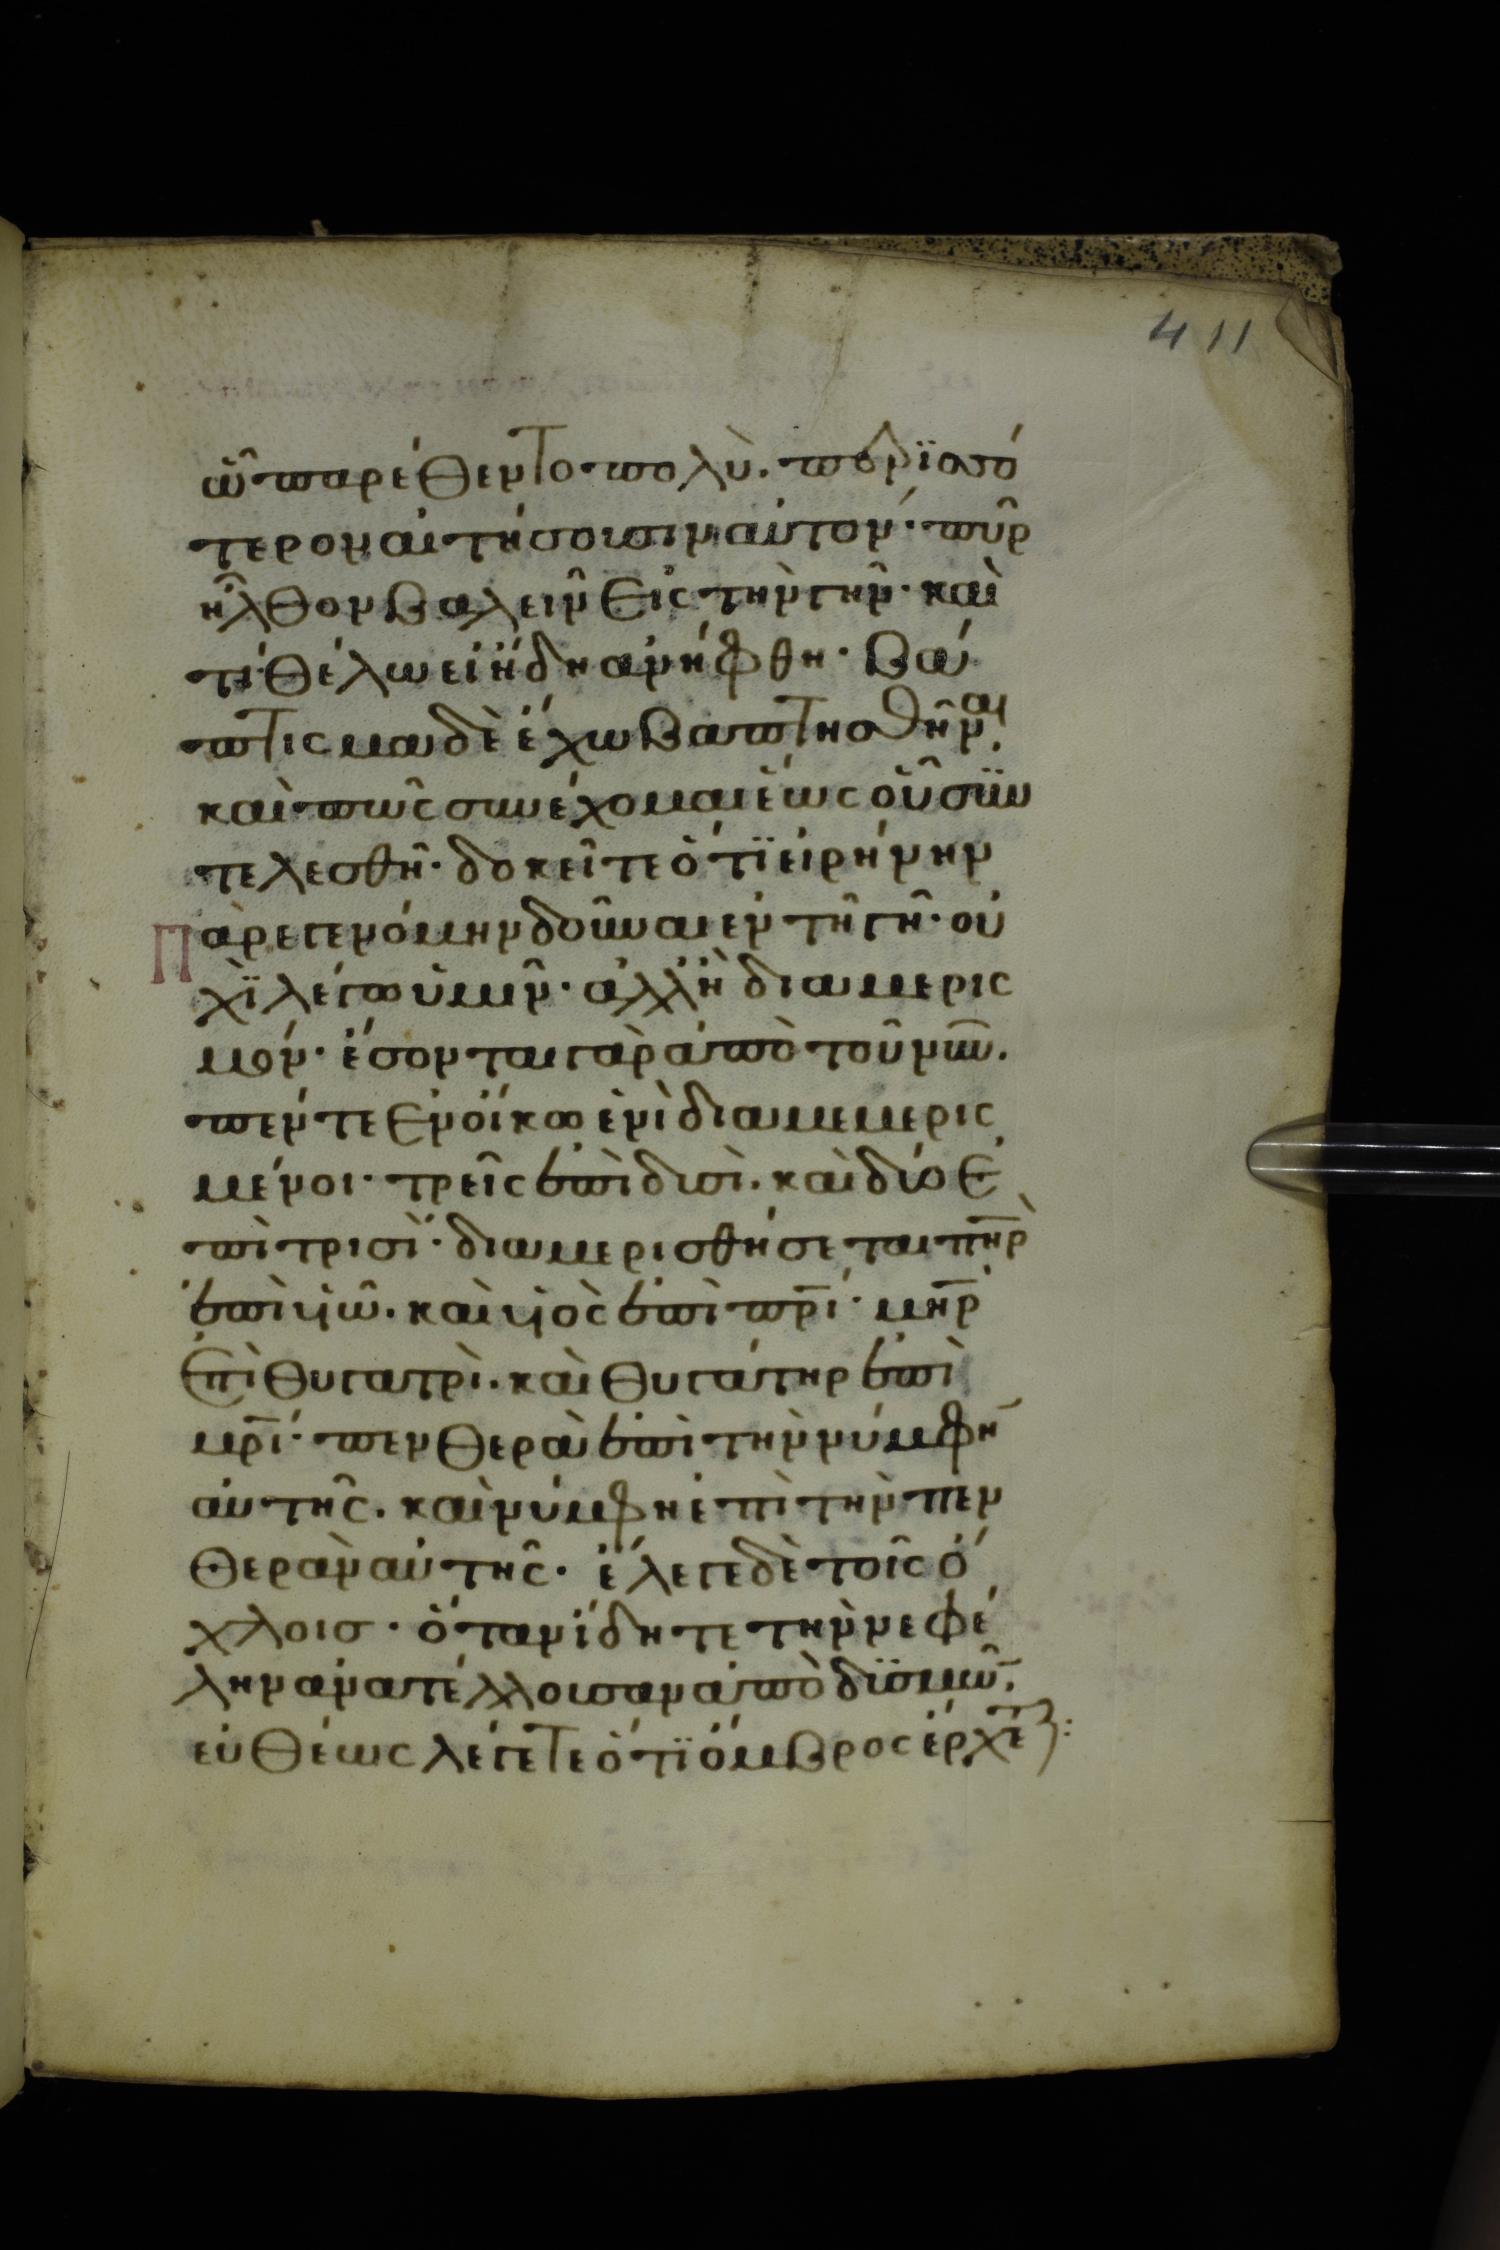 411
ᾧ παρέθεντο πολὺ· περϊσσό
τερον αἰτήσουσιν αὐτόν· πῦρ
ἦλθον βαλεῖν εἰς τὴν γῆν· καὶ
τί θέλω εἰ ἤδη ἀνήφθη· βά
πτισμα δὲ ἔχω βαπτησθῆναι
καὶ πῶς συνέχομαι ἕως οὗ συν
τελεσθῆ· δοκεῖτε ὅτϊ εἰρήνην
Παρεγενόμην δοῦναι ἐν τῆ γῆ· οὐ
χῒ λέγω ὑμῖν· ἀλλ ἢ διαμερις
μόν· ἔσονται γὰρ ἀπὸ τοῦ νῦν.
πέντε ἐν οἴκω ἑνὶ διαμεμερις
μένοι· τρεῖς ἐπὶ δυσὶ. καὶ δύο ἐ
πὶ τρισὶ· διαμερισθήσεται πη̅ρ
ἐπὶ υἱῶ. καὶ υἱὸς ἐπὶ πρ̅ί· μη̅ρ
ἐπὶ θυγατρὶ. καὶ θυγάτηρ ἐπὶ
μρ̅ί· πενθερὰ ἐπὶ τὴν νύμφη̅
αὐτῆς. καὶ νύμφη ἐπὶ τὴν πεν
θερὰν αὐτῆς· ἔλεγε δὲ τοῖς ὄ
χλοισ· ὅταν ἴδητε τὴν νεφέ
λην ἀνατέλλουσαν ἀπὸ δϋσμῶ̅·
εὐθέως λέγετε ὅτϊ ὄμβρος ἔρχετ̅: